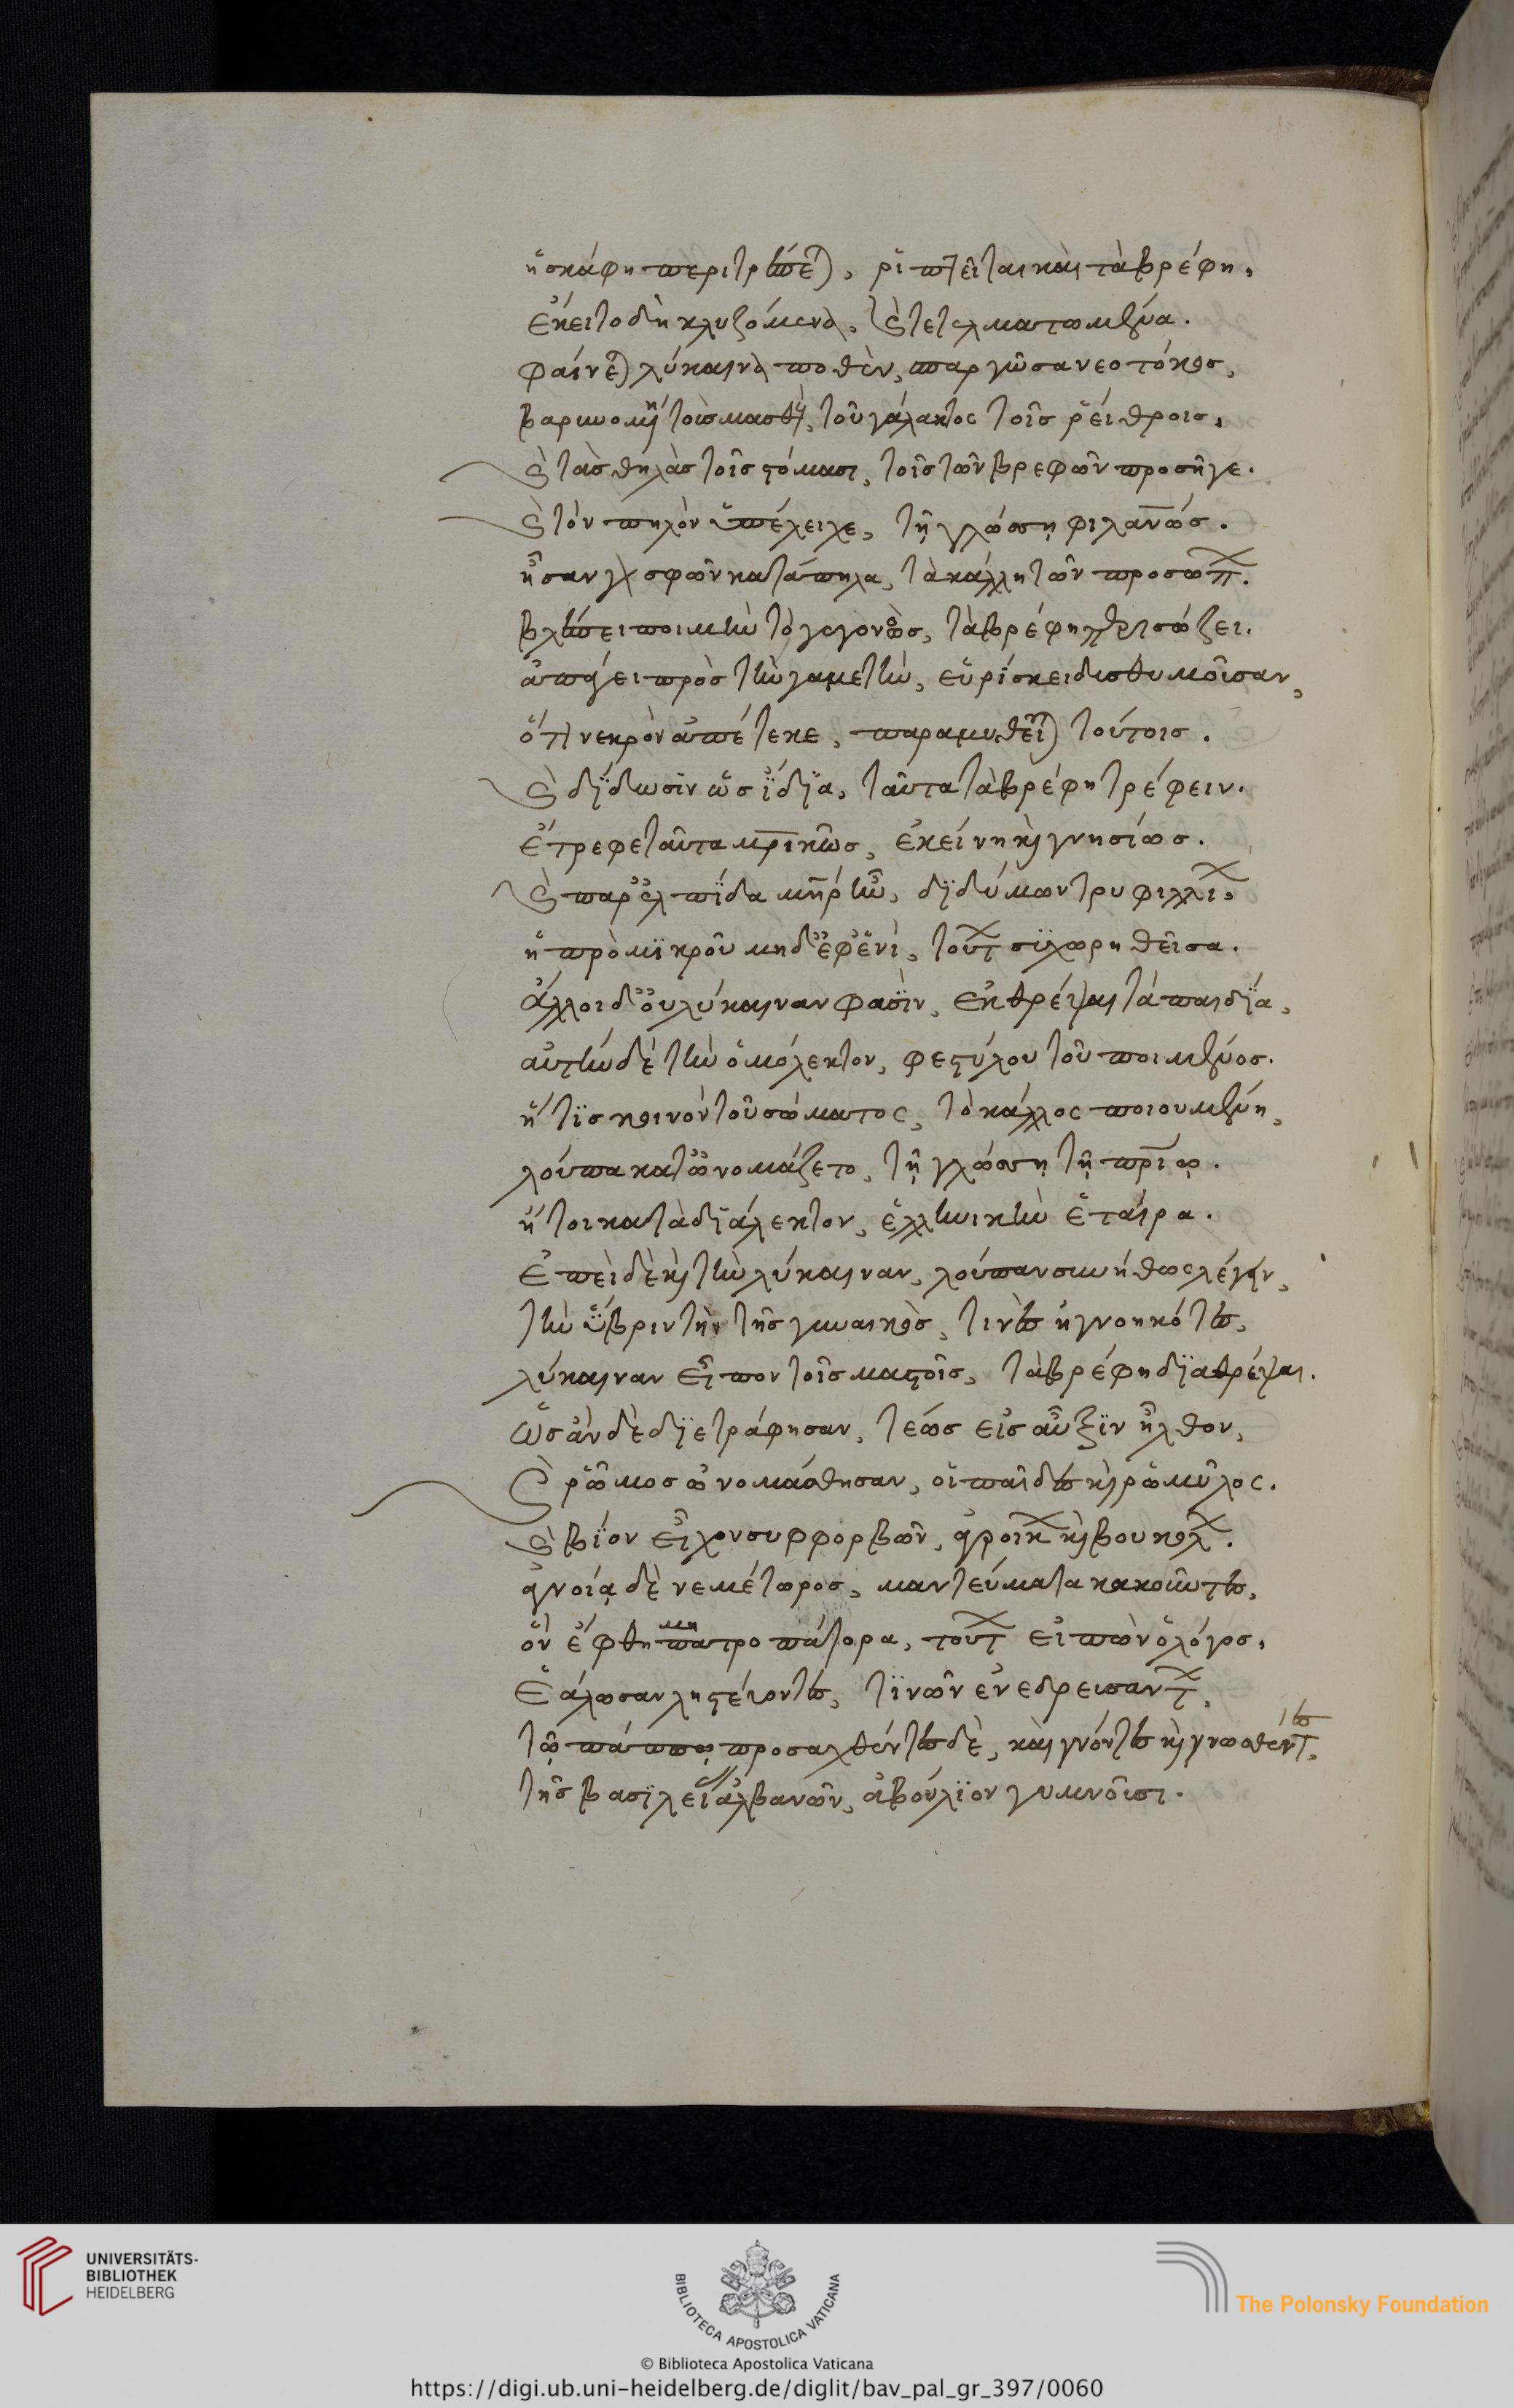 ἡ σκάφη περιτρέπεται, ῥιπτεῖται καὶ τὰ βρέφη,
ἔκειτο δὴ κλυζόμενα, καὶ τετελματωμένα.
φαίνεται λύκαινα ποθὲν, παργῶσα νεοτόκος,
βαρυνομένη τοῖς μαστοῖς, τοῦ γάλακτος τοῖς ῥείθροις,
καὶ τὰς θηλὰς τοῖς στόμασι, τοῖς τῶν βρεφῶν προσῆγε.
καὶ τὸν πηλὸν ὑπέλειχε, τῇ γλώσσῃ φιλανως.
ἦσαν γὰρ σφῶν κατάπηλα, τὰ κάλλη τῶν προσώπων.
βλέπει ποιμὴν τὸ γεγονὼς, τὰ βρέφη σώζει.
ἀπῄει πρὸς τὴν γαμετὴν, εὑρίσκει δυσθυμοῦσαν,
ὅτι νεκρὸν ἀπέτεκε, παραμυθεῖται τούτοις.
καὶ δίδωσιν ὡς ἴδια, ταῦτα τὰ βρέφη τρέφειν.
ἔτρεφε ταῦτα μρικῶς, ἐκείνη καὶ γνησίως.
καὶ παρ' ἐλπίδα μηρ ἦν, διδύμων τρυφιλλίων,
ἡ πρὸ μικροῦ μηδ' ἐφ' ἑνὶ, τούτων συγχωρηθεῖσα.
ἄλλοι δ' οὐ λύκαιναν φασὶν, ἐκθρέψαι τὰ παιδία,
αὐτὴν δὲ τὴν ὁμόλεκτον, φεστύλου τοῦ ποιμένος.
ἥτις κοινὸν τοῦ σώματος, τὸ κάλλος ποιουμένη,
λούπα κατωνομάζετο, τῇ γλώσσῃ τῇ πρίῳ.
ἤτοι κατὰ διάλεκτον, ἑλληνικὴν ἑταίρα.
ἐπεὶ δὲ καὶ τὴν λύκαιναν, λούπαν συνήθως λέγειν,
τὴν ὕβριν τὴν τῆς γυναικὸς, τινὲς ἠγνοηκότες,
λύκαιναν εἶπον τοῖς μαστοῖς, τὰ βρέφη διαθρέψαι.
ὡς ἂν δὲ διετράφησαν, τέως εἰς αὖξιν ἦλθον,
καὶ ῥῶμος ὠνομάσθησαν, οἱ παῖδες καὶ ῥωμῦλος.
καὶ βίον εἶχον συφφορβῶν, ἀγροίκων καὶ βουκόλων.
ἀγνοίᾳ δὲ νεμέτωρος, μαντεύματα κακοῦντες,
ὃν ἔφθη μητροπάτορα, τούτων εἰπὼν ὁ λόγος,
ἑάλωσαν λῃστεύοντες, τινῶν ἐνεδρεισάντων,
τῷ πάππῳ προσαχθέντες δὲ, καὶ γνόντες καὶ γνωσθέντες,
τῆς βασιλείας ἀλβανῶν, ἀβούλιον γυμνοῦσι.
UNIVERSITÄTS-
BIBLIOTHEK
HEIDELBERG
BIBLIOTECA APOSTOLICA VATICANA
The Polonsky Foundation
© Biblioteca Apostolica Vaticana
https://digi.ub.uni-heidelberg.de/diglit/bav_pal_gr_397/0060